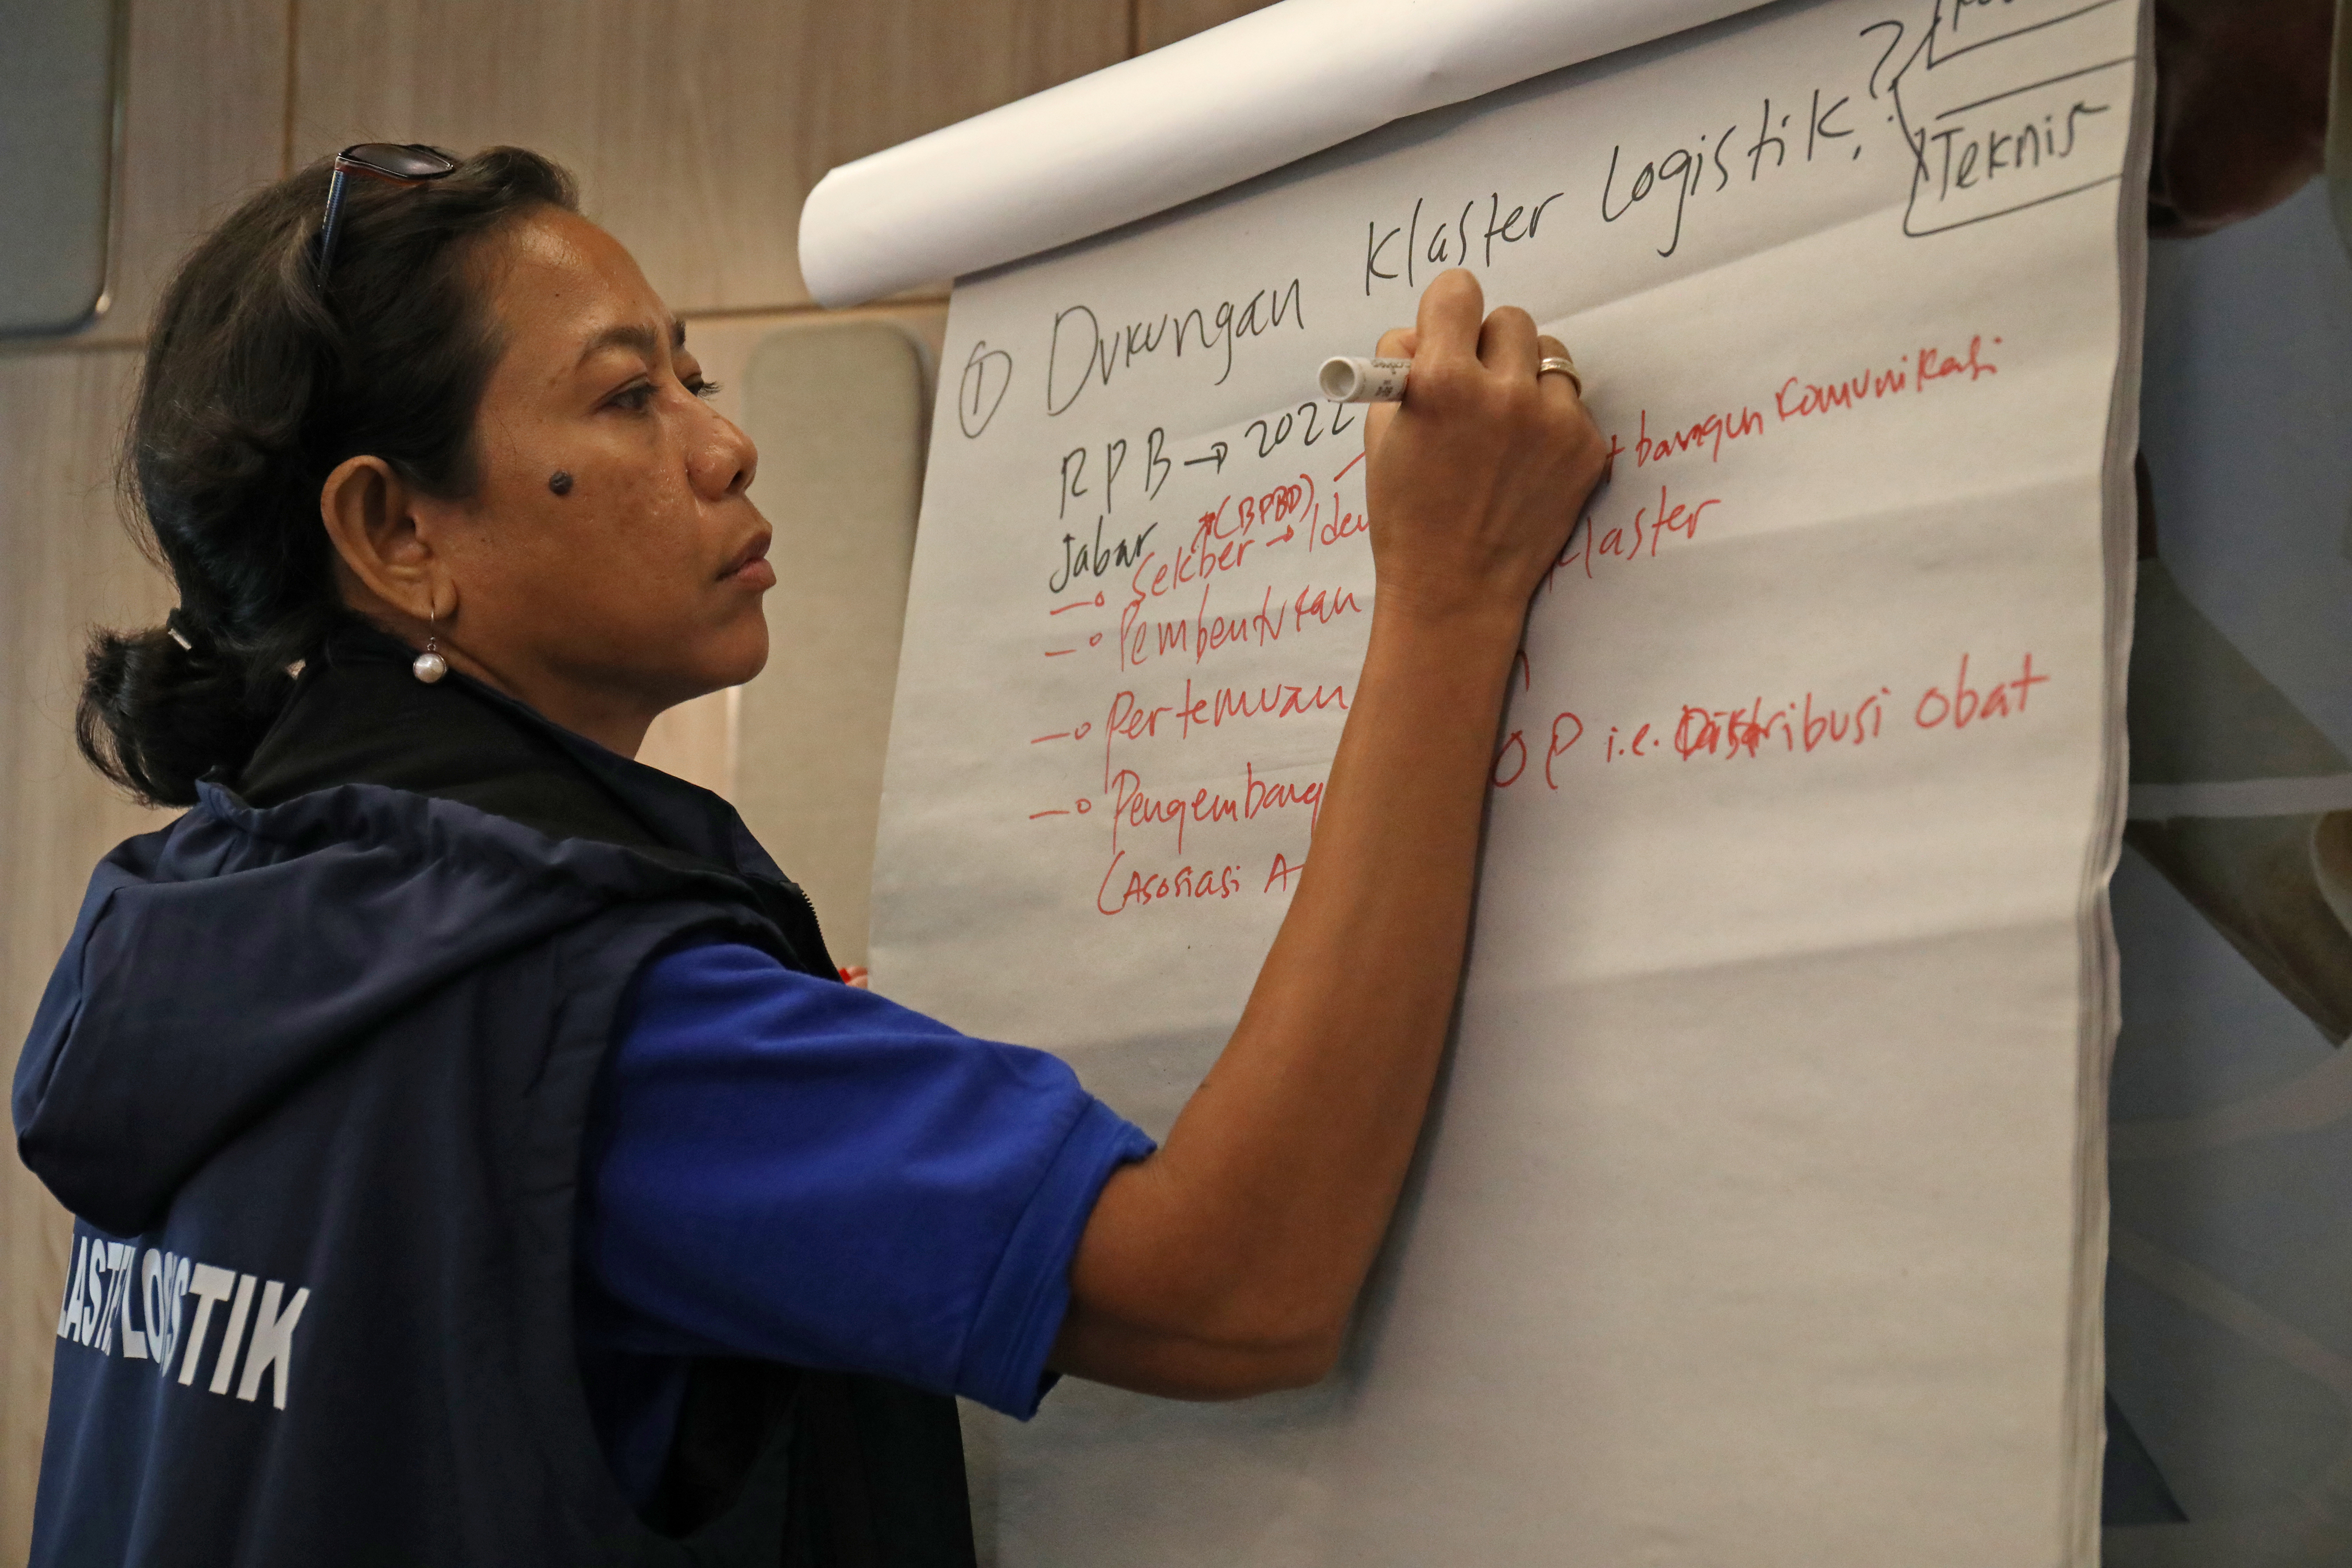 ① Dukungan Klaster Logistik?
Teknis
RPB → 2022
Jabar
(BPBD)
Sekber → Iden + bangun komunikasi
Pembentukan klaster
Pertemuan
Pengembang OP i.e. Distribusi Obat
(Asosiasi A
LASTE LOGISTIK